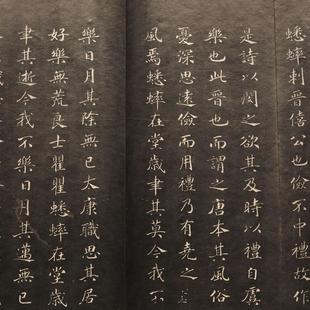 蟋蟀刺晉僖公也儉不中禮故作
是詩以閔之欲其及時以禮自虞
樂也此晉也而謂之唐本其風俗
憂深思遠儉而用禮乃有堯之
風焉蟋蟀在堂歲聿其莫今我不
樂日月其除無已大康職思其居
好樂無荒良士瞿瞿蟋蟀在堂歲
聿其逝今我不樂日月其邁無已